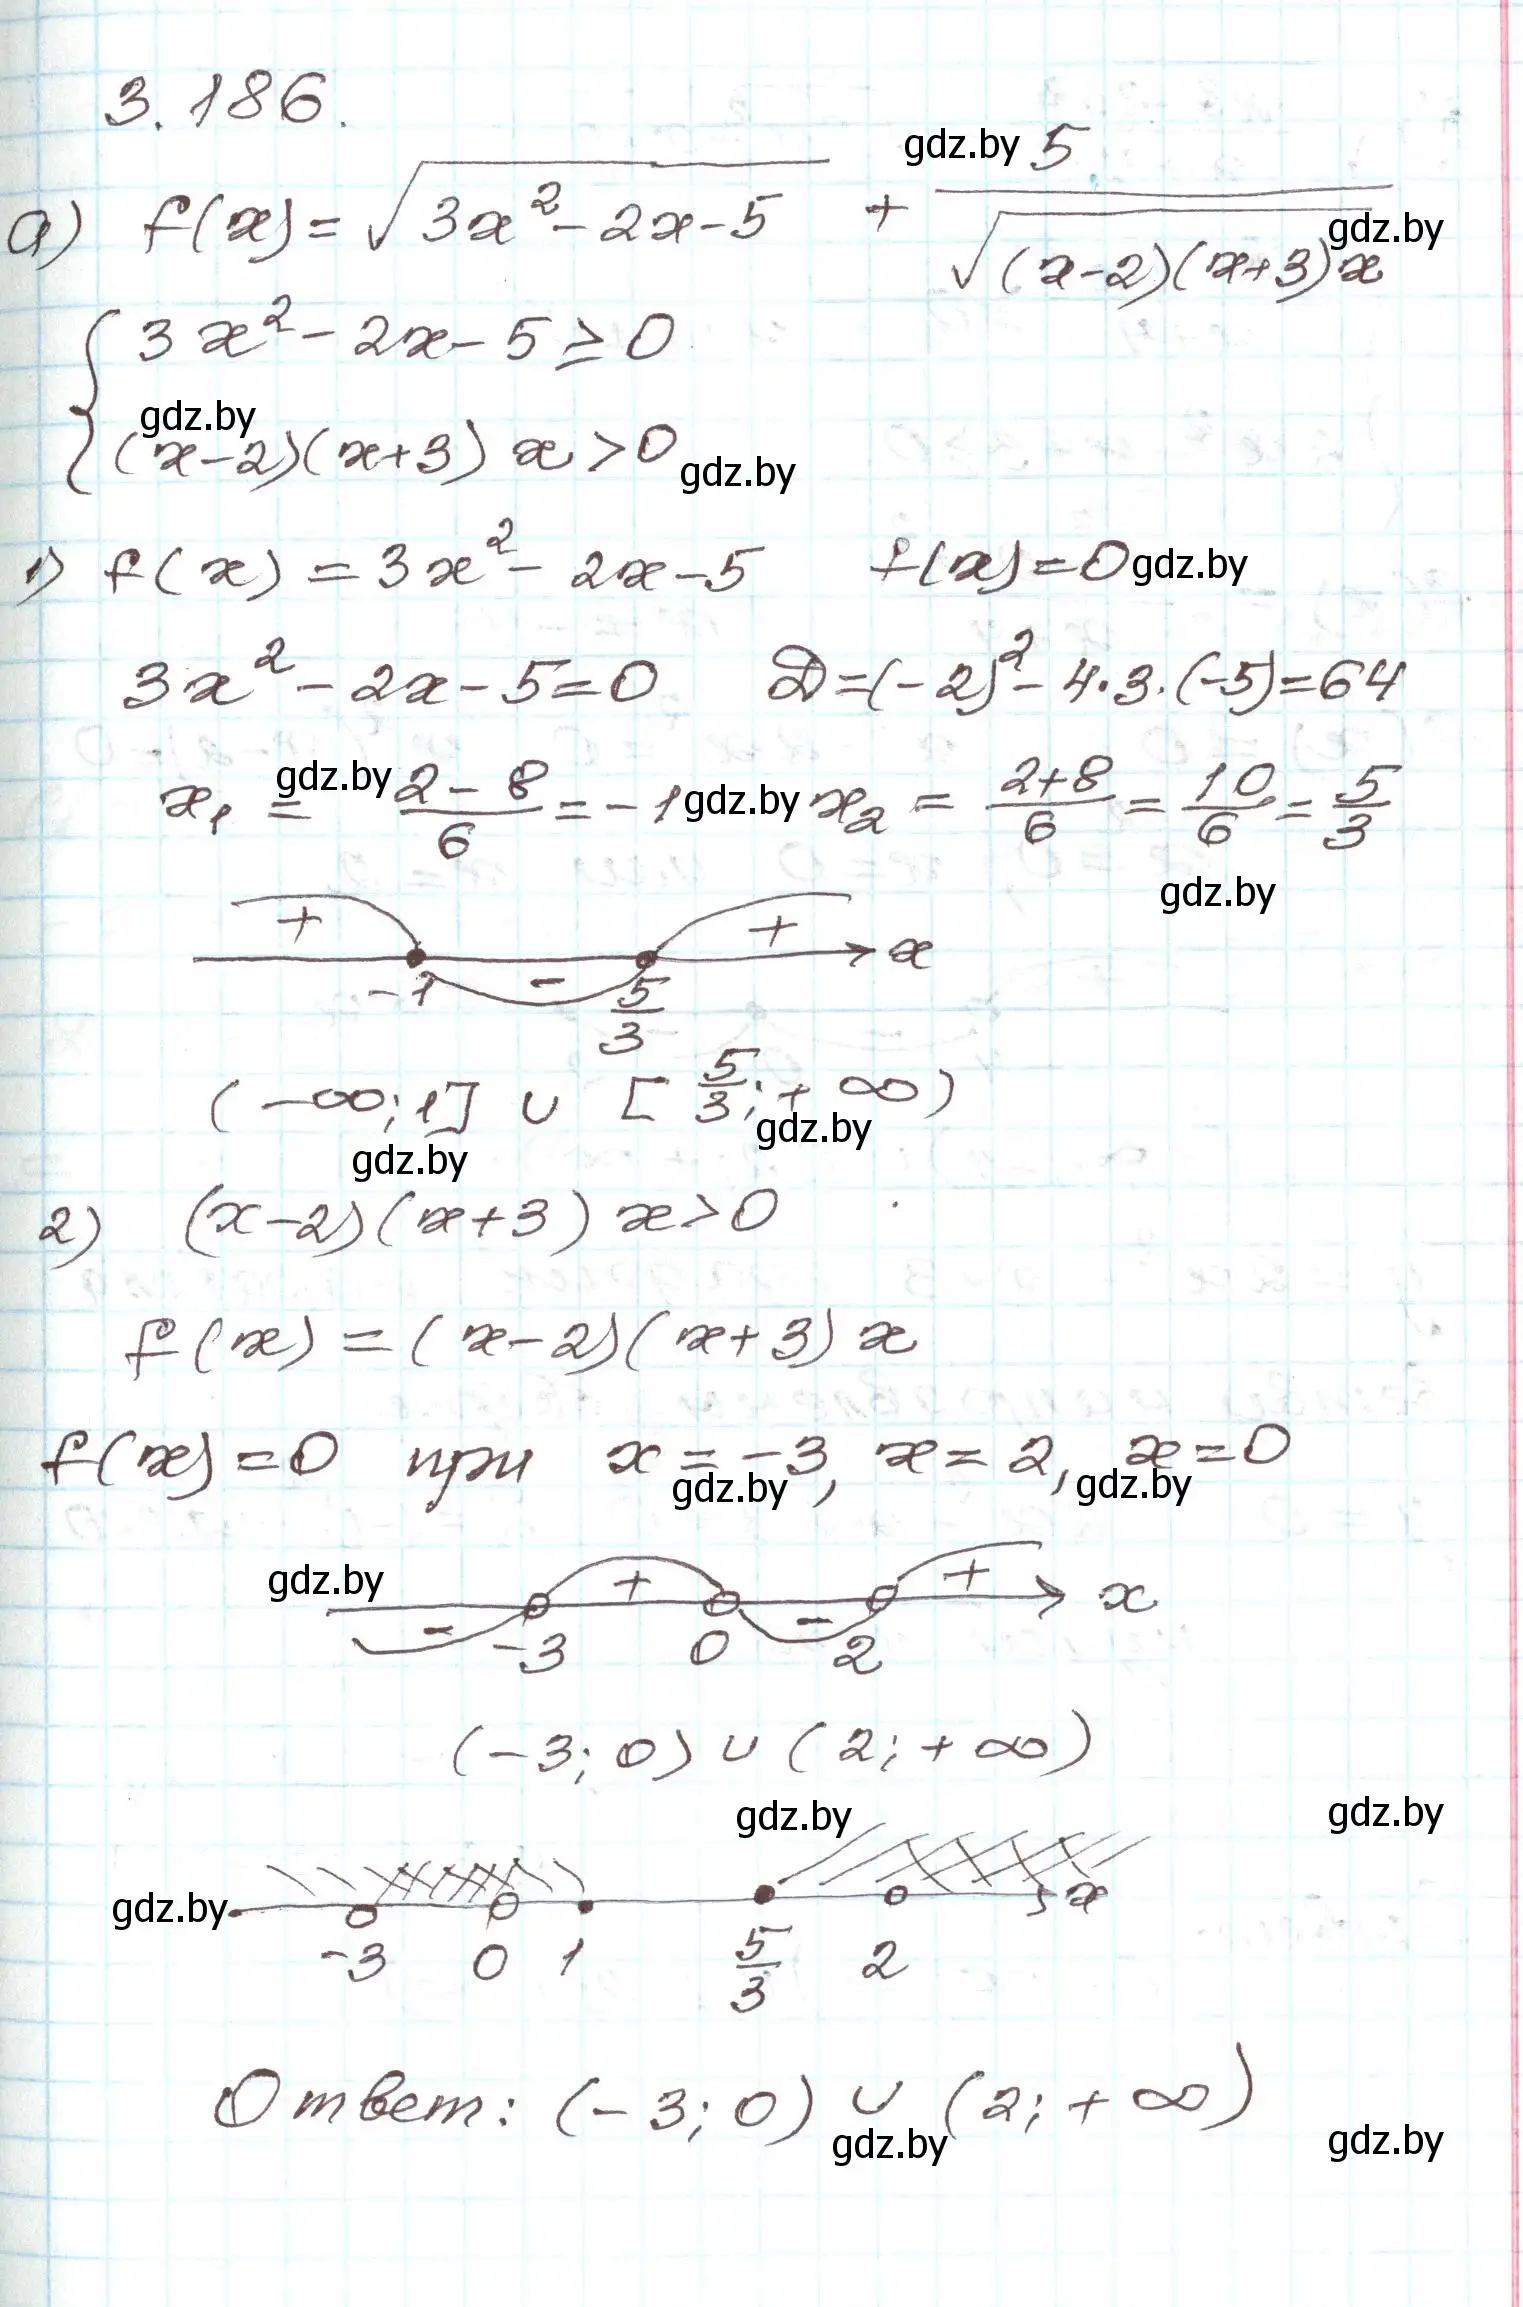 3.186.
gdz.by
а) f(x) = √(3x² - 2x - 5) + 5/√((x-2)(x+3)x)
gdz.by
{ 3x² - 2x - 5 ≥ 0
gdz.by
(x-2)(x+3) x > 0
gdz.by
1) f(x) = 3x² - 2x - 5 f(x) = 0 gdz.by
3x² - 2x - 5 = 0 D = (-2)² - 4·3·(-5) = 64
x₁ = gdz.by (2-8)/6 = -1 gdz.by x₂ = (2+8)/6 = 10/6 = 5/3
gdz.by
+ - + x
-1 5/3
(-∞; 1] ∪ [5/3; +∞)
gdz.by gdz.by
2) (x-2)(x+3) x > 0
f(x) = (x-2)(x+3) x
f(x) = 0 при x = -3, x = 2, x = 0
gdz.by gdz.by
gdz.by
- + - + x
-3 0 2
(-3; 0) ∪ (2; +∞)
gdz.by gdz.by
gdz.by x
-3 0 1 5/3 2
Ответ: (-3; 0) ∪ (2; +∞)
gdz.by gdz.by